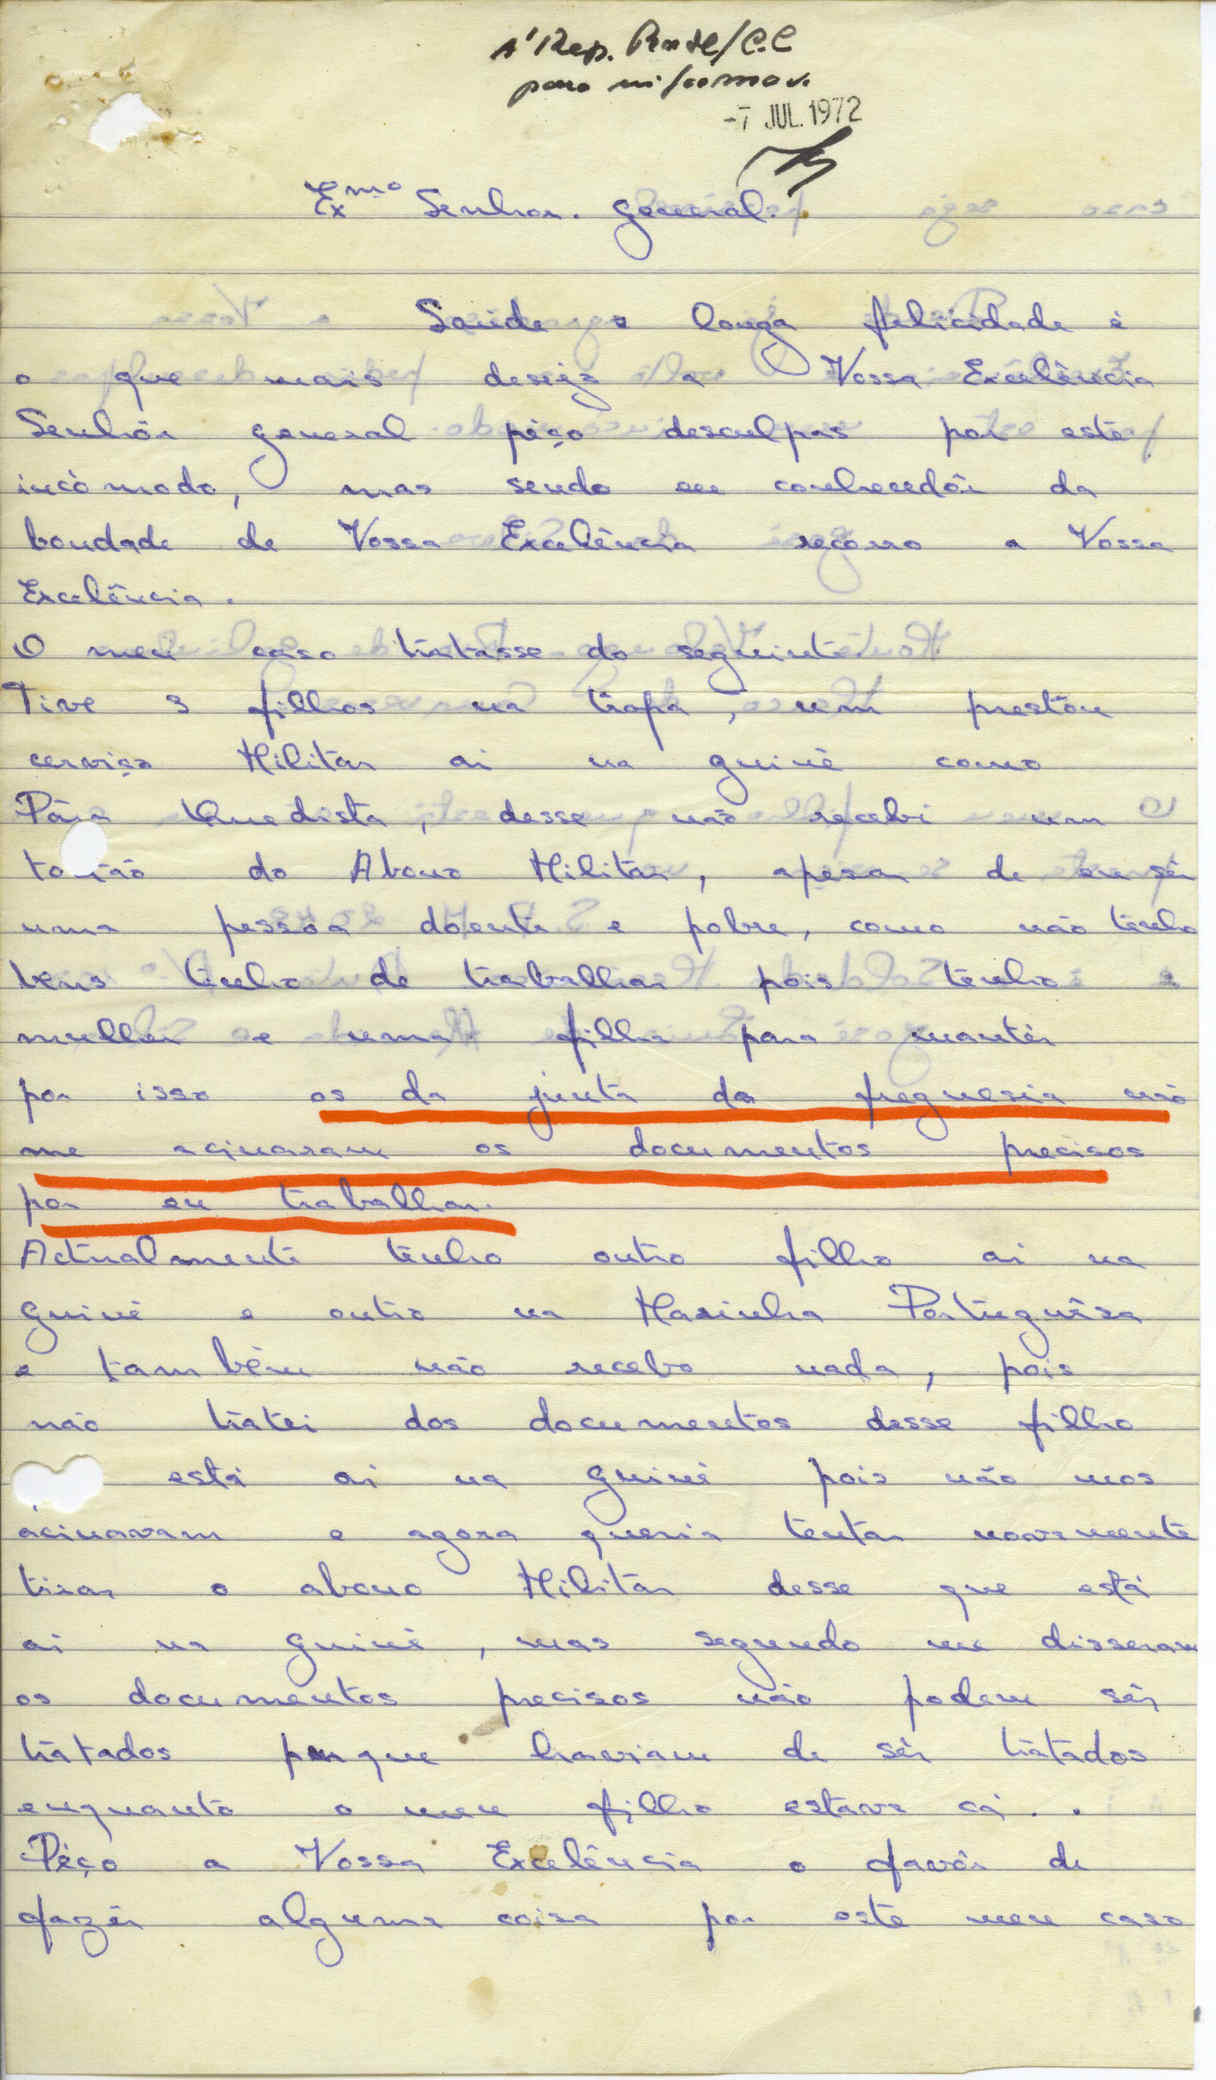 À Rep.
para informar.
-7 JUL. 1972
Exmo Senhor. general.
Saúde e longa felicidade é
o que mais deseja a Vossa Excelência
Senhôr general péço desculpas por este
incómodo, mas sendo eu conhecedôr da
bondade de Vossa Excelência recorro a Vossa
Excelência.
O meu caso tratasse do seguinte
Tive 3 filhos na tropa, um prestou
cerviço Militar ai na guiné como
Pára Quedista, desse não recebi um
tostão do Abono Militar, apesar de eu sêr
uma pessoa doente e pobre, como não tenho
bens tenho de trabalhar pois tenho a
mulher e uma filha para mantêr
por isso os da junta da freguesia não
me acinaram os documentos precisos
por eu trabalhar.
Actualmente tenho outro filho ai na
guiné e outro na Marinha Portuguêsa
e também não recebo nada, pois
não tratei dos documentos desse filho
está ai na guiné pois não mos
acinavam e agora queria tentar novamente
tirar o abono Militar desse que está
ai na guiné, mas segundo me disseram
os documentos precisos não podem sêr
tratados porque haviam de sêr tratados
enquanto o meu filho estava cá..
Péço a Vossa Excelência o favôr de
fazêr alguma coisa por este meu caso